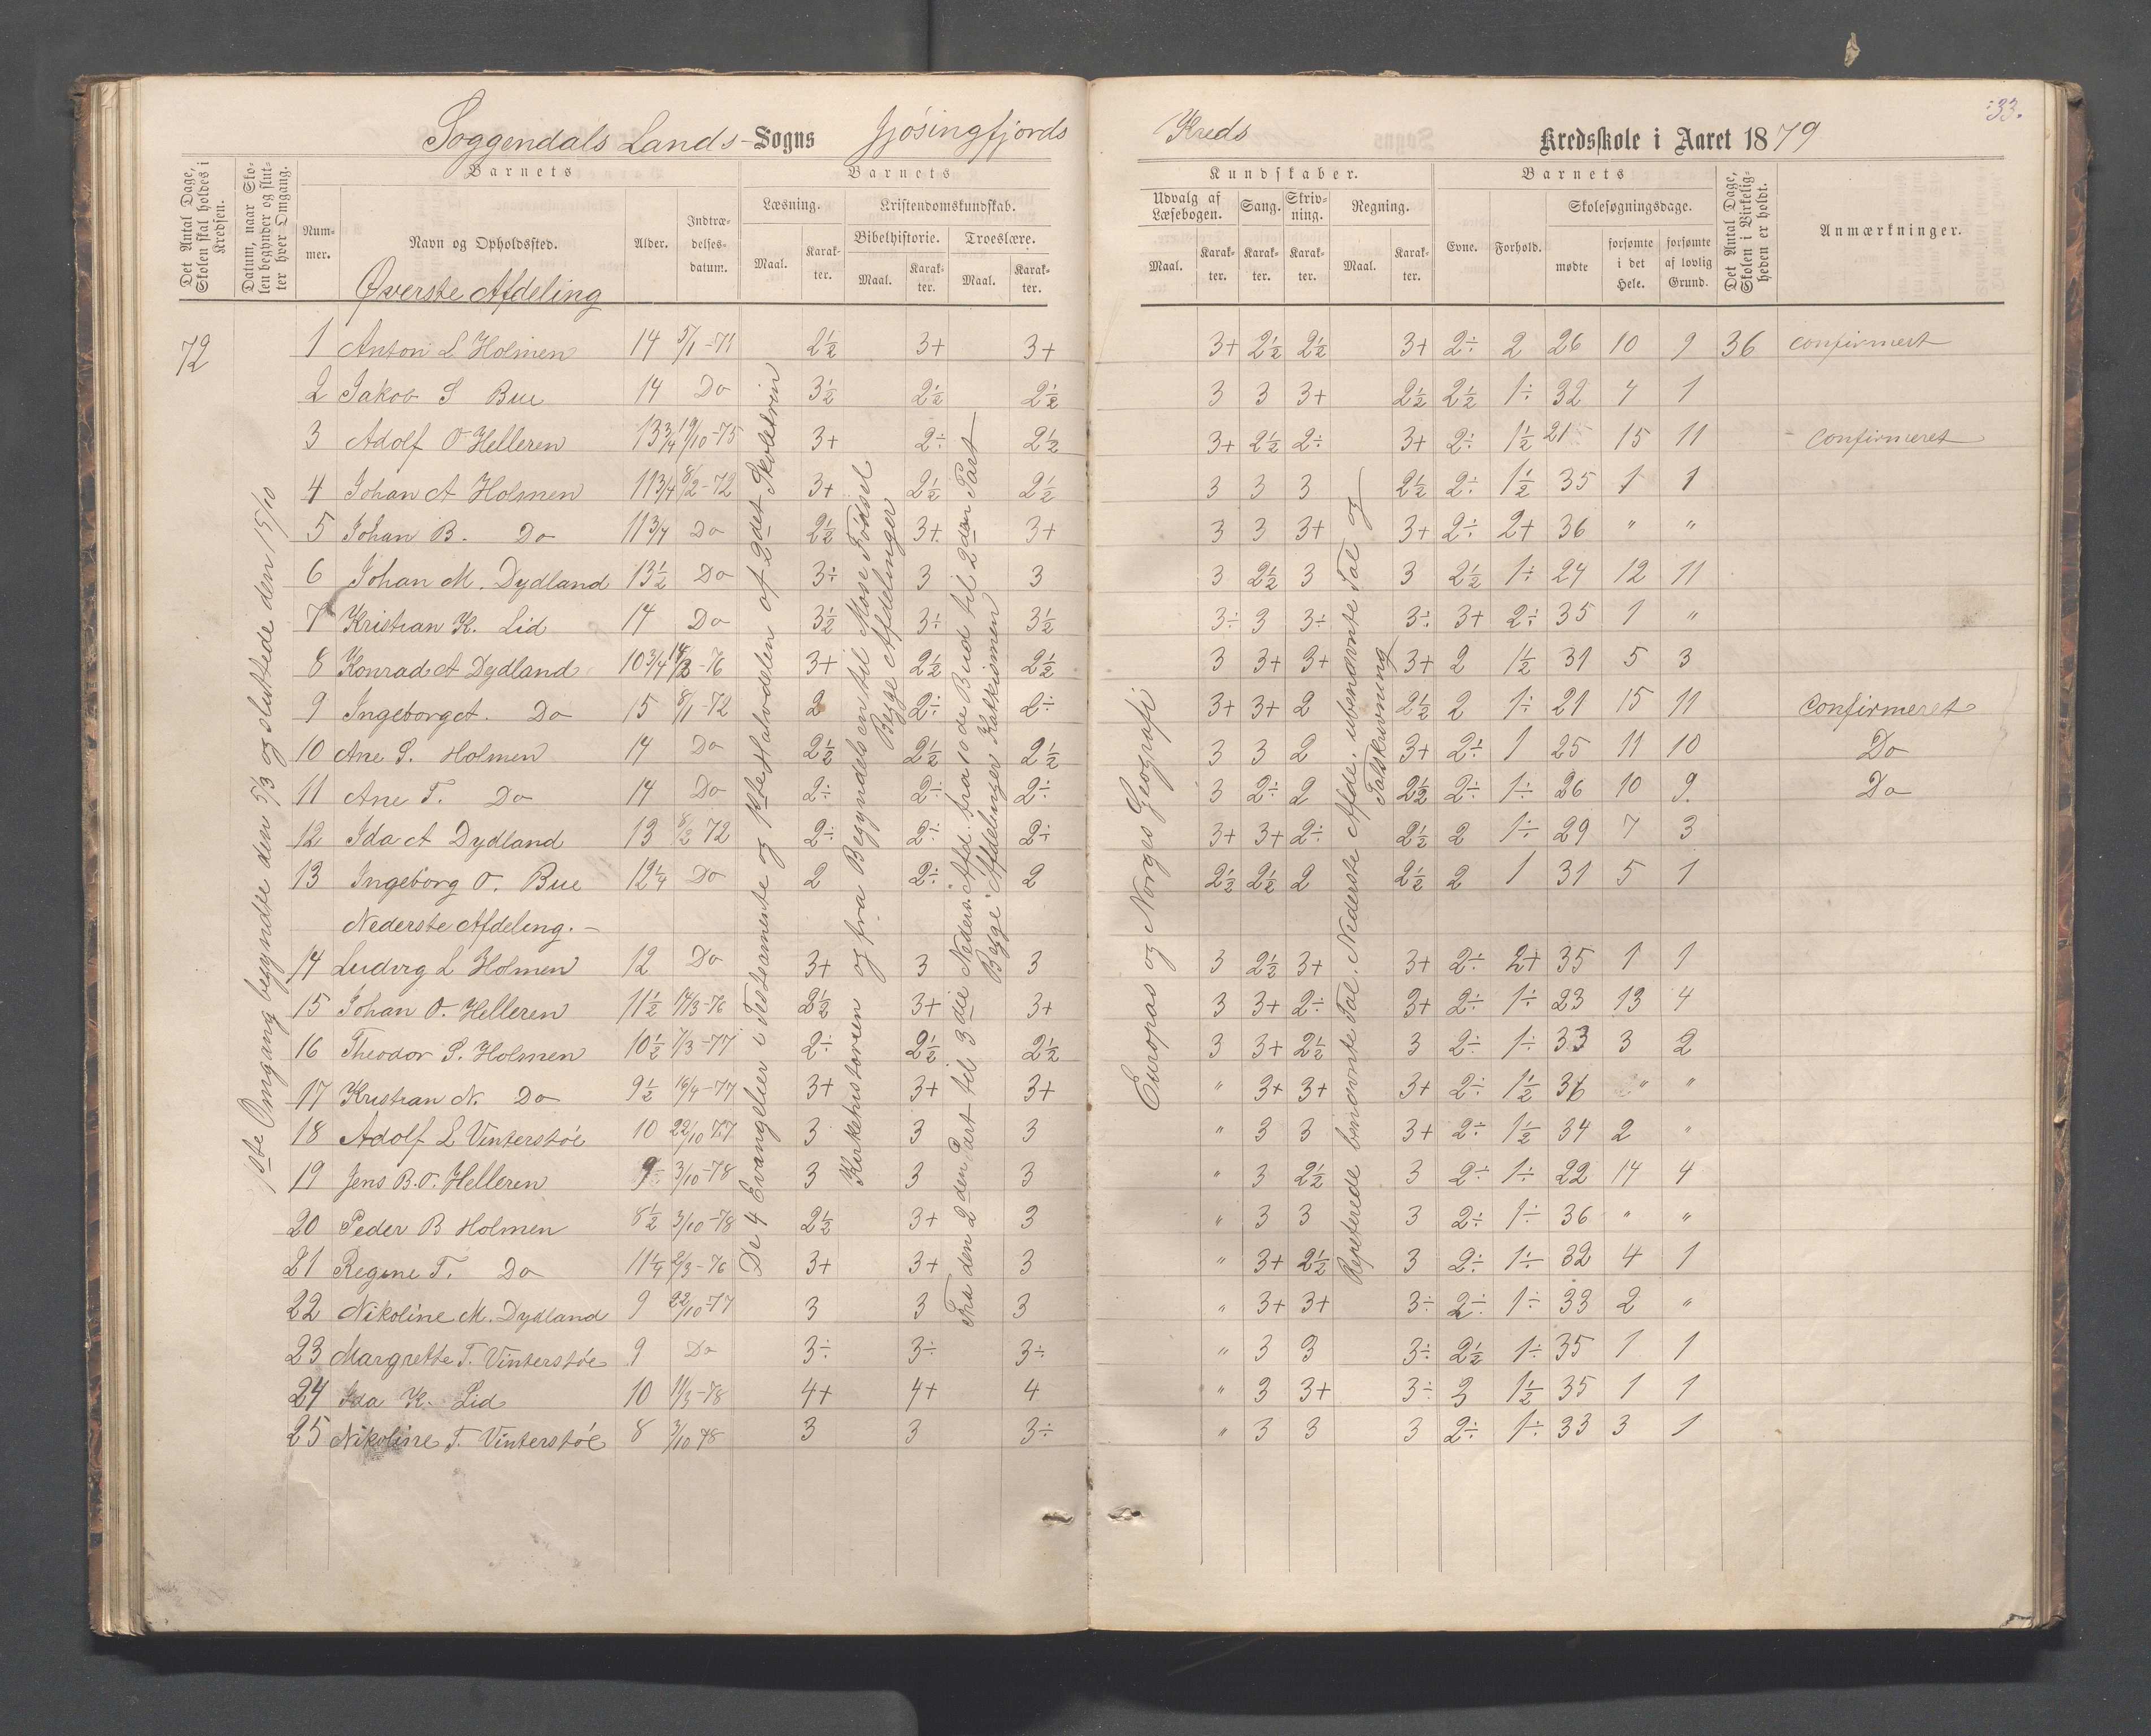 33.
Soggendals Lands-Sogns Jøsingfjords Kreds Kredsskole i Aaret 1879
Det Antal Dage, Skolen skal holdes i Kredsen.
Datum, naar Skolen begynder og slutter hver Omgang.
Barnets Barnets Kundskaber. Barnets
Nummer. Navn og Opholdssted. Alder. Indtrædelsesdatum.
Læsning. Kristendomskundskab. Udvalg af Læsebogen. Sang. Skrivning. Regning. Evne. Forhold. Skolesøgningsdage.
Bibelhistorie. Troeslære.
Maal. Karakter. Maal. Karakter. Maal. Karakter. Maal. Karakter. Karakter. Karakter. Maal. Karakter. mødte forsømte i det Hele. forsømte af lovlig Grund.
Det Antal Dage, Skolen i Virkeligheden er holdt.
Anmærkninger.
Øverste Afdeling
72
1ste Omgang begyndte den 5/3 og sluttede den 15/10
1 Anton L Holmen 14 5/1-71 2½ 3+ 3+ 3+ 2½ 2½ 3+ 2÷ 2 26 10 9 36 confirmert
2 Jakob S Bue 14 Do 3½ 2½ 2½ 3 3 3+ 2½ 2½ 1÷ 32 4 1
3 Adolf O Helleren 13¾ 19/10-75 3+ 2÷ 2½ 3+ 2½ 2÷ 3+ 2÷ 1½ 21 15 11 confirmeret
4 Johan A Holmen 11¾ 8/2-72 3+ 2½ 2½ 3 3 3 2½ 2÷ 1½ 35 1 1
5 Johan B. Do 11¾ Do 2½ 3+ 3+ 3 3 3+ 3+ 2÷ 2+ 36 " "
6 Johan M. Dydland 13½ Do 3÷ 3 3 3 2½ 3 3 2½ 1÷ 24 12 11
7 Kristian K. Lid 14 Do 3½ 3÷ 3½ 3÷ 3 3÷ 3÷ 3+ 2÷ 35 1 "
8 Konrad A Dydland 10¾ 14/3-76 3+ 2½ 2½ 3 3+ 3+ 3+ 2 1½ 31 5 3
9 Ingeborg A. Do 15 8/1-72 2 2÷ 2÷ 3+ 3+ 2 2½ 2 1÷ 21 15 11 confirmeret
10 Ane S. Holmen 14 Do 2½ 2½ 2½ 3 3 2 3+ 2÷ 1 25 11 10 Do
11 Ane T. Do 14 Do 2÷ 2÷ 2÷ 3 2÷ 2 2½ 2÷ 1÷ 26 10 9. Do
12 Ida A Dydland 13 8/2 72 2÷ 2÷ 2÷ 3+ 3+ 2÷ 2½ 2 1÷ 29 7 3
13 Ingeborg O. Bue 12¼ Do 2 2÷ 2 2½ 2½ 2 2½ 2 1 31 5 1
Nederste Afdeling.-
14 Ludvig L Holmen 12 Do 3+ 3 3 3 2½ 3+ 3+ 2÷ 2+ 35 1 1
15 Johan O. Helleren 11½ 14/3-76 2½ 3+ 3+ 3 3+ 2÷ 3+ 2÷ 1÷ 23 13 4
16 Theodor S. Holmen 10½ 7/3-77 2÷ 2½ 2½ 3 3+ 2½ 3 2÷ 1÷ 33 3 2
17 Kristian N. Do 9½ 16/4-77 3+ 3+ 3+ " 3+ 3+ 3+ 2÷ 1½ 36 " "
18 Adolf L Vinterstøe 10 22/10 77 3 3 3 " 3 3 3+ 2÷ 1½ 34 2 "
19 Jens B.O. Helleren 9÷ 3/10-78 3 3 3 " 3 2½ 3 2÷ 1÷ 22 14 4
20 Peder B Holmen 8½ 3/10-78 2½ 3+ 3 " 3 3 3 2÷ 1÷ 36 " "
21 Regine T. Do 11¼ 2/3-76 3+ 3+ 3 " 3+ 2½ 3 2÷ 1÷ 32 4 1
22 Nikoline M. Dydland 9 22/10-77 3 3 3 " 3+ 3+ 3÷ 2÷ 1÷ 33 2 "
23 Margrethe T. Vinterstøe 9 Do 3÷ 3÷ 3÷ " 3 3 3÷ 2½ 1÷ 35 1 1
24 Ida K. Lid 10 11/3-78 4+ 4+ 4 " 3 3+ 3÷ 3 1½ 35 1 1
25 Nikoline T. Vinterstøe 8 3/10 78 3 3 3÷ " 3 3 3 2÷ 1÷ 33 3 1
De 4 Evangelier i Testamente og 1ste Halvdelen af 2det Skoletrin
Kirkehistorien og fra Begyndelsen til Mose Fødsel
Begge Afdelinger
Fra den 2den Part til 3die Neders. Afd. fra 10de Bud til 2den Part
Begge Afdelinger Katekismen
Europas og Norges Geografi
Repeterede benævnte Tal. Nederste Afde. ubenævnte Tal og
Talskrivning